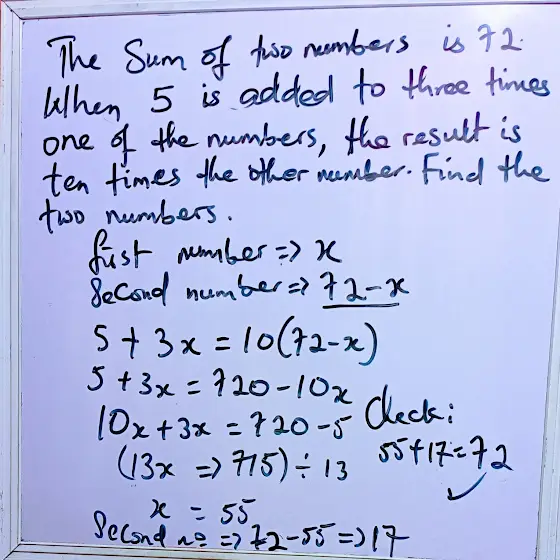 The Sum of two numbers is 72.
When 5 is added to three times
one of the numbers, the result is
ten times the other number. Find the
two numbers.
first number => x
Second number => 72-x
5 + 3x = 10(72-x)
5 + 3x = 720 - 10x
10x + 3x = 720 - 5
(13x => 715) ÷ 13
x = 55
Second no => 72-55 => 17
Check:
55+17=72 ✓